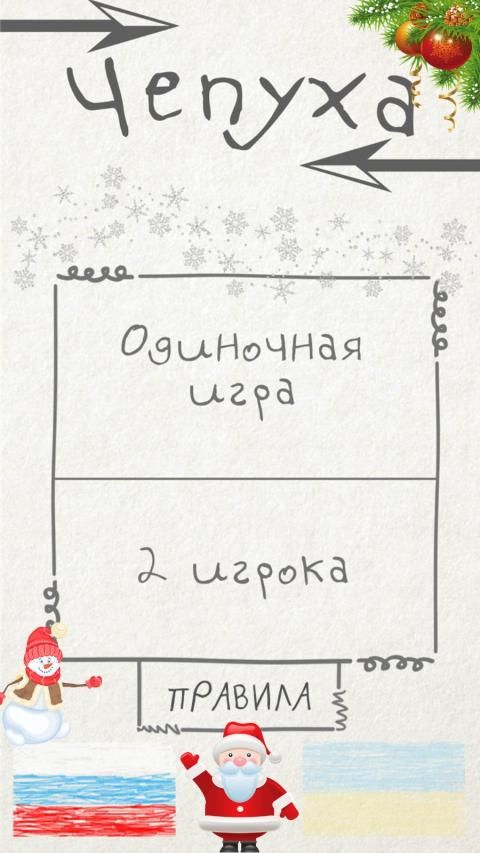 Чепуха
Одиночная
игра
2 игрока
ПРАВИЛА